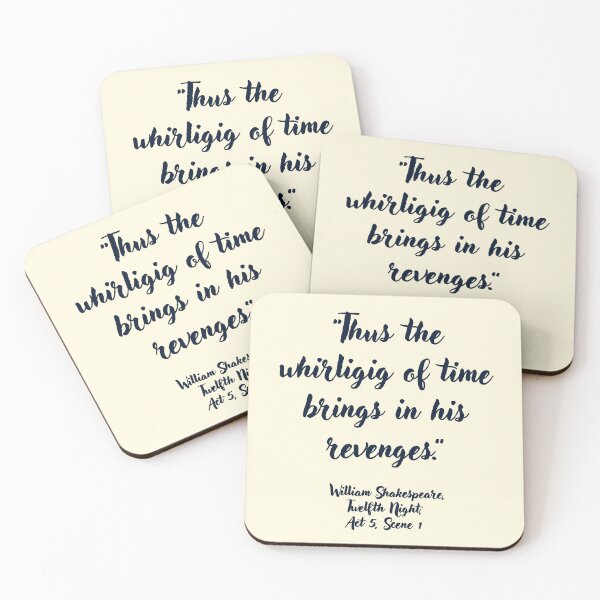 "Thus the
whirligig of time
brings in his
"Thus the
whirligig of time
brings in his
revenges."
"Thus the
whirligig of time
brings in his
revenges."
William
Twelfth
Act 5,
"Thus the
whirligig of time
brings in his
revenges."
William Shakespeare,
Twelfth Night,
Act 5, Scene 1